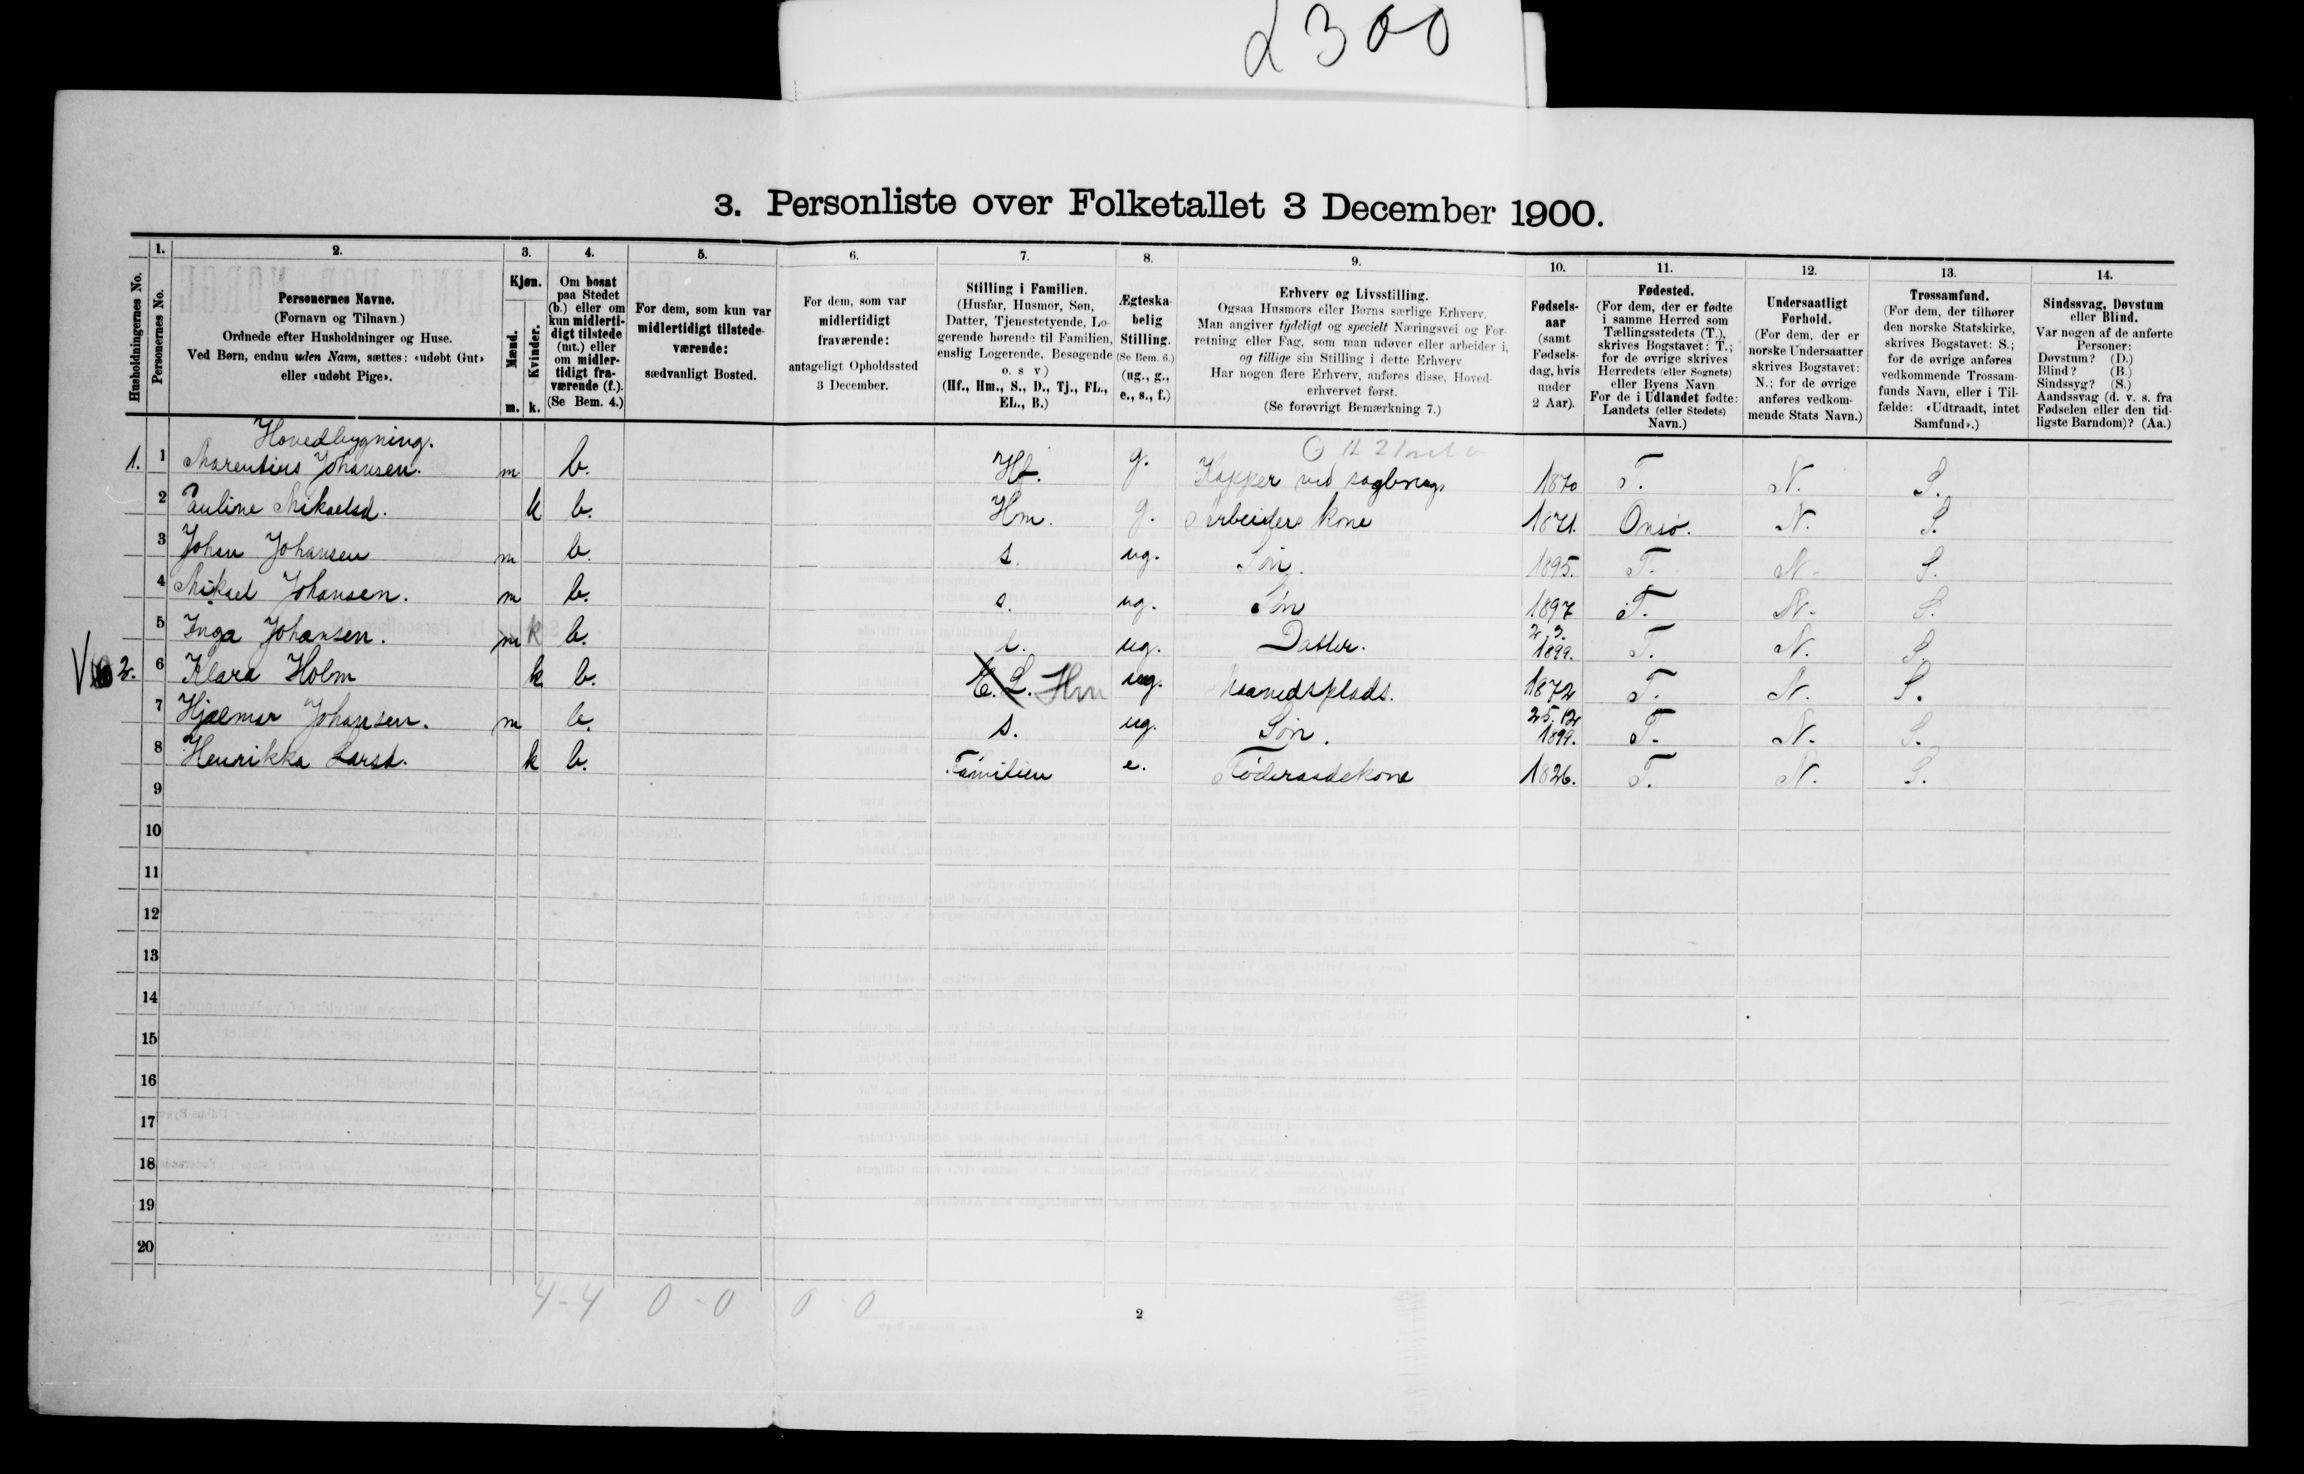 2300
3. Personliste over Folketallet 3 December 1900.
Husholdningernes No.
1.
Personernes No.
2.
Personernes Navne.
(Fornavn og Tilnavn.)
Ordnede efter Husholdninger og Huse.
Ved Børn, endnu uden Navn, sættes: «udøbt Gut»
eller «udøbt Pige».
3.
Kjøn.
Mænd.
Kvinder.
m. k.
4.
Om bosat
paa Stedet
(b.) eller om
kun midlerti-
digt tilstede
(mt.) eller
om midler-
tidigt fra-
værende (f.).
(Se Bem. 4.)
5.
For dem, som kun var
midlertidigt tilstede-
værende:
sædvanligt Bosted.
6.
For dem, som var
midlertidigt
fraværende:
antageligt Opholdssted
3 December.
7.
Stilling i Familien.
(Husfar, Husmor, Søn,
Datter, Tjenestetyende, Lo-
gerende hørende til Familien,
enslig Logerende, Besøgende
o. s v.)
(Hf., Hm., S., D., Tj., FL.,
EL., B.)
8.
Ægteska-
belig
Stilling.
(Se Bem. 6.)
(ug., g.,
e., s., f.)
9.
Erhverv og Livsstilling.
Ogsaa Husmors eller Børns særlige Erhverv.
Man angiver tydeligt og specielt Næringsvei og For-
retning eller Fag, som man udøver eller arbeider i,
og tillige sin Stilling i dette Erhverv
Har nogen flere Erhverv, anføres disse, Hoved-
erhvervet først.
(Se forøvrigt Bemærkning 7.)
10.
Fødsels-
aar
(samt
Fødsels-
dag, hvis
under
2 Aar).
11.
Fødested.
(For dem, der er fødte
i samme Herred som
Tællingsstedets (T.),
skrives Bogstavet: T.;
for de øvrige skrives
Herredets (eller Sognets)
eller Byens Navn
For de i Udlandet fødte:
Landets (eller Stedets)
Navn.)
12.
Undersaatligt
Forhold.
(For dem, der er
norske Undersaatter
skrives Bogstavet:
N.; for de øvrige
anføres vedkom-
mende Stats Navn.)
13.
Trossamfund.
(For dem, der tilhører
den norske Statskirke,
skrives Bogstavet: S.;
for de øvrige anføres
vedkommende Trossam-
funds Navn, eller i Til-
fælde: «Udtraadt, intet
Samfund».)
14.
Sindssvag, Døvstum
eller Blind.
Var nogen af de anførte
Personer:
Døvstum? (D.)
Blind? (B.)
Sindssyg? (S.)
Aandssvag (d. v. s. fra
Fødselen eller den tid-
ligste Barndom)? (Aa.)
Hovedbygning.
1. 1 Marentius Johansen. m b. Hf. g. Kapper ved sagbrug 1870 T. N. S.
2 Pauline Mikaelsd. k b. Hm. g. Arbeiders kone 1871. Onsø. N. S.
3 Johan Johansen m b. s. ug. Søn. 1895. T. N. S.
4 Mikael Johansen. m b. s. ug. Søn 1897 T. N. S.
5 Inga Johansen. m k b. ug. Datter. 2.3. 1899. T. N. S.
2. 6 Klara Holm k b. E. L. Hm ug. 1872 T. N. S.
7 Hjalmar Johansen. m b. s. ug. Søn. 25.12 1899. T. N. S.
8 Henrikka Larsd. k b. Familien e. Føderaadskone 1826. T. N. S.
9
10
11
12
13
14
15
16
17
18
19
20
4-4 0-0 0-0
2